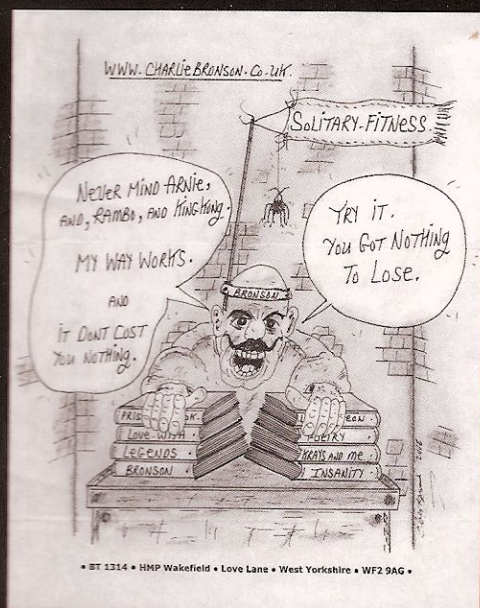 WWW.CHARLIEBRONSON.CO.UK.
SOLITARY-FITNESS.
NEVER MIND ARNIE,
AND, RAMBO, AND KING KONG.
MY WAY WORKS.
AND
IT DONT COST
YOU NOTHING.
TRY IT.
YOU GOT NOTHING
TO LOSE.
BRONSON
LOVE WITH
LEGENDS
BRONSON
POETRY
KRAYS AND ME
INSANITY
• BT 1314 • HMP Wakefield • Love Lane • West Yorkshire • WF2 9AG •